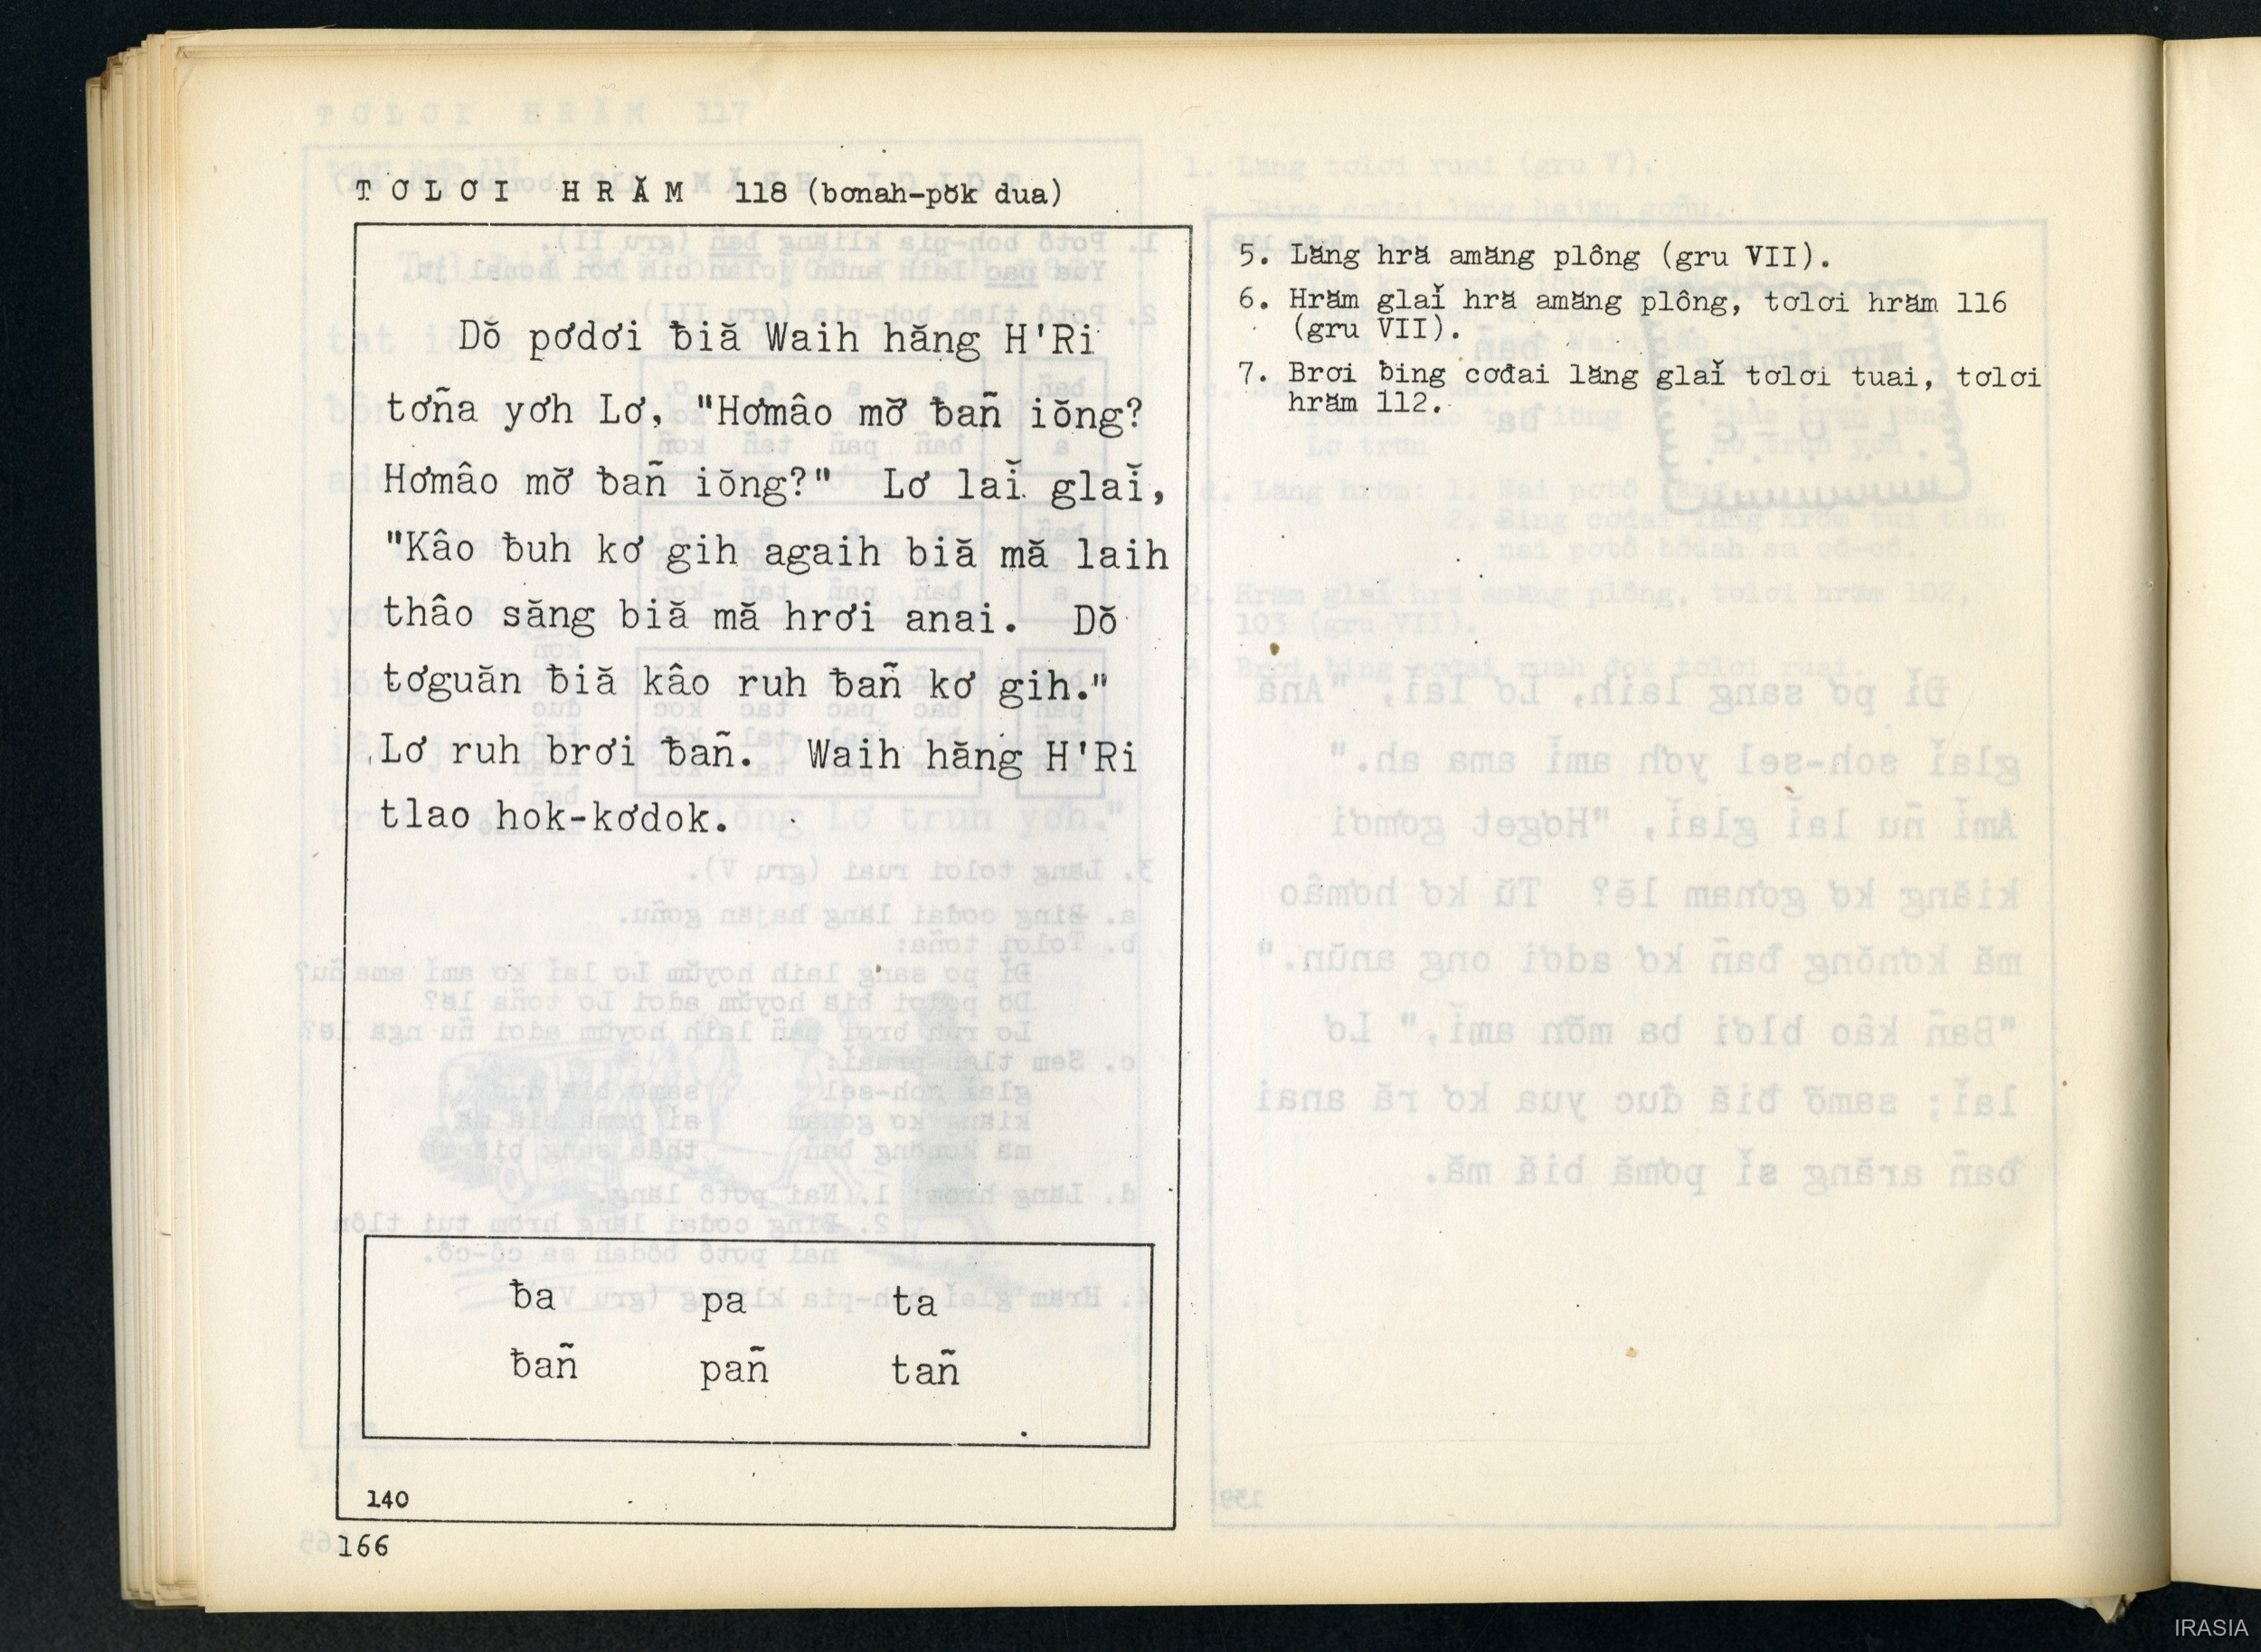 TƠLƠI HRĂM 118 (bơnah-pŏk dua)
Dŏ pơdơi ƀiă Waih hăng H'Ri
tơña yơh Lơ, "Hơmâo mơ̆ ƀañ iŏng?
Hơmâo mơ̆ ƀañ iŏng?" Lơ laĭ glaĭ,
"Kâo ƀuh kơ gih agaih biă mă laih
thâo săng biă mă hrơi anai. Dŏ
tơguăn ƀiă kâo ruh ƀañ kơ gih."
Lơ ruh brơi ƀañ. Waih hăng H'Ri
tlao hok-kơdok.
ƀa pa ta
ƀañ pañ tañ
140
166
5. Lăng hră amăng plông (gru VII).
6. Hrăm glaĭ hră amăng plông, tơlơi hrăm 116
(gru VII).
7. Brơi ƀing cơđai lăng glaĭ tơlơi tuai, tơlơi
hrăm 112.
IRASIA